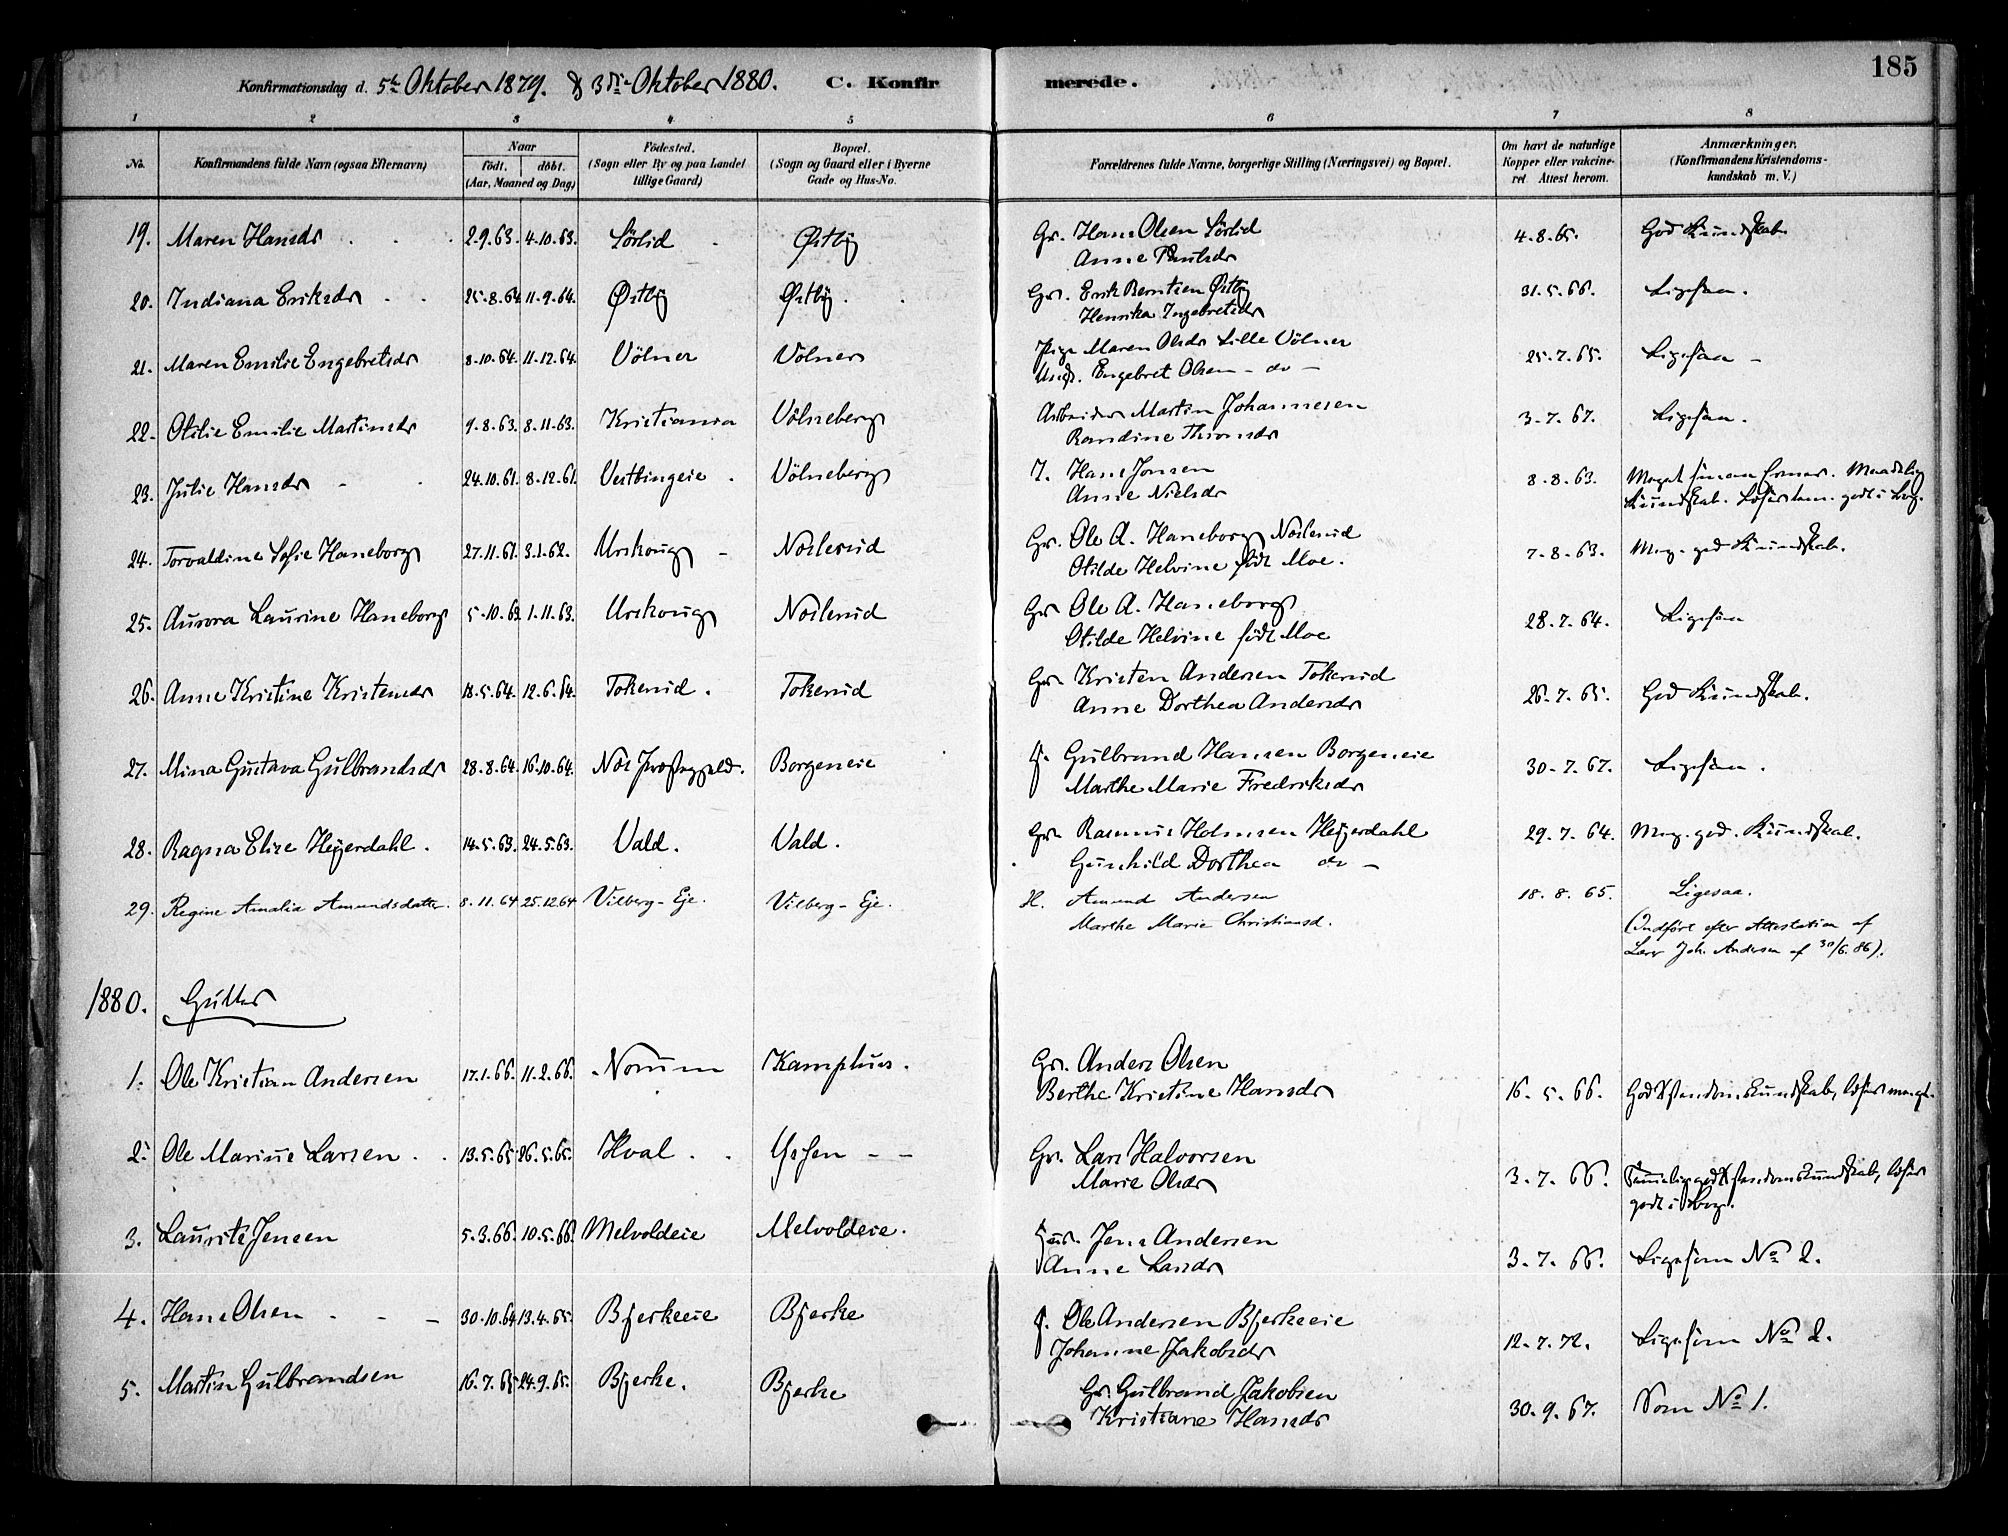 185
Konfirmationsdag d. 5te Oktober 1879. & 3die Oktober 1880. C. Konfirmerede.
1 2 3 4 5 6 7 8
No. Konfirmandens fulde Navn (ogsaa Efternavn) Naar født. døbt. (Aar, Maaned og Dag) Fødested. (Sogn eller By og paa Landet tillige Gaard) Bopæl. (Sogn og Gaard eller i Byerne Gade og Hus-No. Forældrenes fulde Navne, borgerlige Stilling (Næringsvei) og Bopæl. Om havt de naturlige Kopper eller vaccineret. Attest herom. Anmærkninger. (Konfirmandens Kristendomskundskab m. V.)
19. Maren Hansdr 2.9.63. 4.10.63. Sörlid Østby Gr. Hans Olsen Sörlid 4.8.65. God Kundskab.
Anne Paulsdr
20. Indiana Eriksdr 25.8.64 11.9.64. Østby Østby. Gr. Erik Berntsen Østby 31.5.66. Ligesaa.
Henrika Ingebretsdr
21. Maren Emilie Engebretsdr 8.10.64. 11.12.64. Völner Völner Pige Maren Olsdr Lille Völner 25.7.65. Ligesaa -
Ungk. Engebret Olsen - do -
22. Otilie Emilie Martinsdr 9.8.63. 8.11.63. Kristiania Völneberg Arbeider Martin Johannesen 3.7.67. Ligesaa.
Randine Thronsdr
23. Julie Hansdr 24.10.61. 8.12.61. Vestbingeie Völneberg I. Hans Jonsen 8.8.63. Meget Maadelig
Anne Nielsdr Kundskab. godt i Bog.
24. Torvaldine Sofie Haneborg 27.11.61. 3.1.62. Urskoug - Noslerud Gr. Ole A. Haneborg Noslerud 7.8.63. Meg. god Kundskab.
Otilde Helvine født Moe.
25. Aurora Laurine Haneborg 5.10.63 1.11.63. Urskoug Noslerud Gr. Ole A. Haneborg 28.7.64. Ligesaa
Otilde Helvine født Moe
26. Anne Kristine Kristensdr 18.5.64. 12.6.64. Tokerud. Tokerud Gr. Kristen Andersen Tokerud 26.7.65. God Kundskab.
Anne Dorthea Andersdr
27. Mina Gustava Gulbrandsdr 28.8.64. 16.10.64. Nes Præstegjeld. Borgeneie F. Gulbrand Hansen Borgeneie 30.7.67. Ligesaa.
Marthe Marie Fredriksdr
28. Ragna Elise Heyerdahl. 14.5.63. 24.5.63. Vald. Vald. Gr. Rasmus Holmsen Heyerdahl 29.7.64. Meg. god. Kundskab.
Gunhild Dorthea do -
29. Regine Amalia Amundsdatter. 8.11.64 25.12.64 Vilberg-Eje. Vilberg-Eje. H. Amund Andersen 18.8.65. Ligesaa.
Marthe Marie Christiansd. (Indført efter Attestation af
Lærer Joh. Andersen af 30/6.86).
1880. Gutter
1. Ole Kristian Andersen 17.1.66. 11.2.66. Norum Kamphus. Gr. Anders Olsen
Berthe Kristine Hansdr 16.5.66. God Xstendomskundskab, læser
2. Ole Marius Larsen 13.5.65 26.5.65. Hval Gr. Lars Halvorsen
Marie Olsdr 3.7.66. Temmelig god Xstendomskundskab, læser
godt i Bog.
3. Laurits Jensen 5.3.66. 10.5.66. Melvoldeie Melvoldeie. Hus. Jens Andersen
Anne Larsdr 3.7.66. Ligesom No 2.
4. Hans Olsen 30.10.64 13.4.65. Bjerkeeie Bjerke F. Ole Andersen Bjerkeeie
Johanne Jakobsdr 12.7.72. Ligesom No 2.
5. Martin Gulbrandsen 16.7.65 24.9.65. Bjerke. Bjerke Gr. Gulbrand Jakobsen
Kristiane Hansdr 30.9.67. Som No 1.